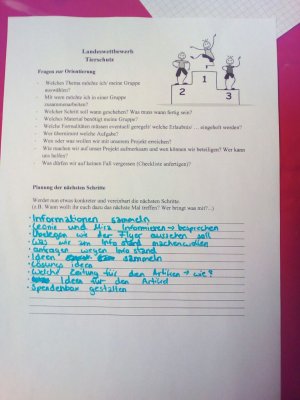 Landeswettbewerb
Tierschutz
Fragen zur Orientierung
2
1
3
- Welches Thema möchte ich/ meine Gruppe
auswählen?
- Mit wem möchte ich in einer Gruppe
zusammenarbeiten?
- Welcher Schritt soll wann geschehen? Was muss wann fertig sein?
- Welches Material benötigt meine Gruppe?
- Welche Formalitäten müssen eventuell geregelt/ welche Erlaubnis/ ... eingeholt werden?
- Wer übernimmt welche Aufgabe?
- Wen oder was wollen wir mit unserem Projekt erreichen?
- Wie machen wir auf unser Projekt aufmerksam und wen können wir beteiligen? Wer kann
uns helfen?
- Was dürfen wir auf keinen Fall vergessen (Checkliste anfertigen)?
Planung der nächsten Schritte
Werdet nun etwas konkreter und vereinbart die nächsten Schritte
(z.B. Wann wollt ihr euch dazu das nächste Mal treffen? Wer bringt was mit?...)
• Informationen sammeln
• Leonie und Mira Informieren → besprechen
• Überlegen wie der Flyer aussehen soll
• Was wir am Infostand machen wollen
• anfragen wegen Infostand
• Ideen sammeln
• Lösungs ideen
• Welche Zeitung für den Artikel → wie?
• Ideen für den Artikel
• Spendenbox gestalten